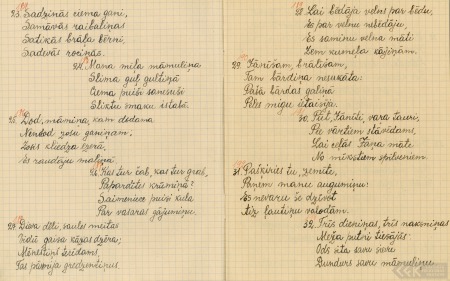 23. Sadzinās ciema gani,
Samāvās raibaliņas
Satikās brāļa bērni,
Sadevās rociņās.
24. Mana mīļa māmuliņa
Slima guļ gultiņā
Ciema puiši
istabā.
25. Dod, māmiņa, kam dodama
Nedod zosu ganiņam,
Zoss kliedza ezerā,
Es raudāju maliņā.
26. Kas tur čab, kas tur grab,
Papardīšu krūmiņā?
Saimeniece puiši kūla
Par vasaras gājumiņu.
27. Dieva dēli, saules meitas
Vidū gaisa kāzas dzēra,
Mēnestiņis
Tas pārmija gredzentiņus.
28. Lai bēdāja velns par bēdu,
Es par velnu nebēdāju,
Es saminu velna māti
Zem kumeļa kājiņām.
29. Jānīšam, brālīšam,
Tam bārdiņa neuzkāta:
Pašā bārdas galiņā
Peles migu
30. Pūt, Jānīti, vara tauri,
Pie vārtiem stāvēdams,
Lai ceļas Jāņa māte
No mīkstiem spilveniem.
31. Pašķiries tu, zemīte,
Paņem manu augumiņu:
Es nevaru še dzīvot
Aiz ļautiņu valodām.
32. Trīs dieniņas, trīs naksniņas
Meža putni
Ods sita savu sievu
Dundurs savu māmuliņu.